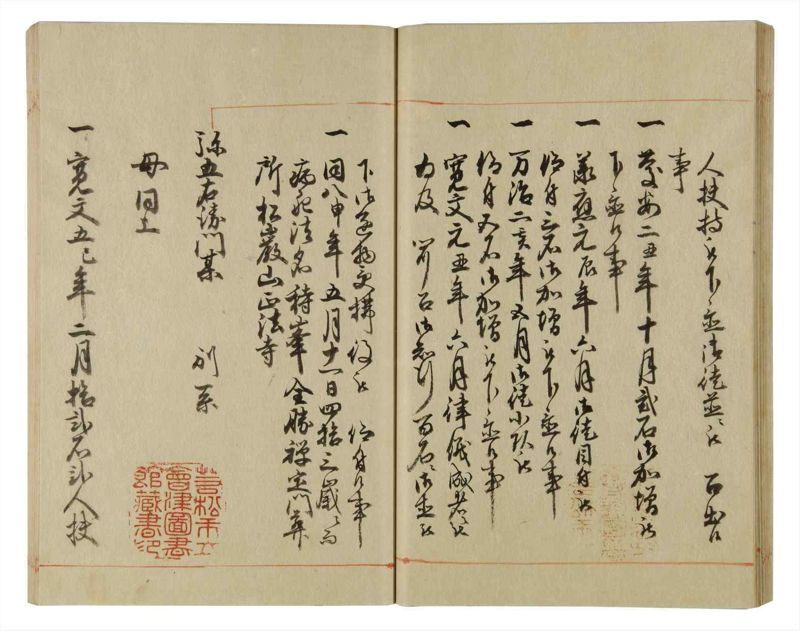 人扶持被下置御徒並被 召出
事
一 慶安二丑年十月弐石御加増被
下置候事
一 承應元辰年六月御徒目付被
仰付三石御加増被下置候事
一 万治二亥年五月御徒小頭被
仰付五石御加増被下置候事
一 寛文元丑年六月律儀成者
百石
下 仰付候事
一 同八申年五月十一日四拾三歳ニ而
病死法名 全勝禅定門葬
所 松巖山正法寺
弥五右衛門某 別系
母同上
一 寛文五巳年二月拾弐石弐人扶
若松市立
會津圖書
館藏書印